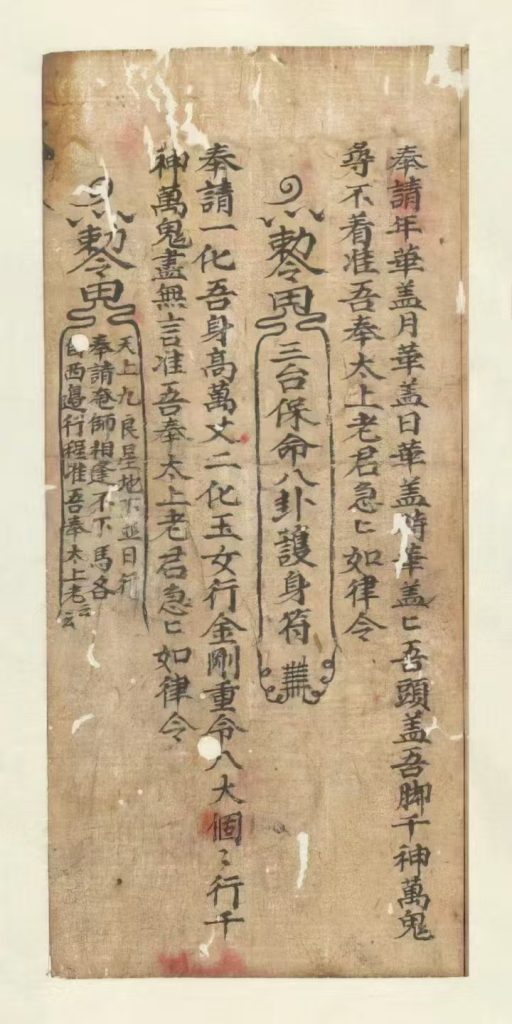 奉請年華盖月華盖日華盖時華盖匕吾頭盖吾脚千神萬鬼
尋不着准吾奉太上老君急匕如律令
勅令
三台保命八卦護身符
奉請一化吾身高萬丈二化玉女行金剛重令八大個〻行千
神萬鬼盡無言准吾奉太上老君急匕如律令
勅令
天上九良星地下並日行
奉請奄師相逢不下馬各
自西邊行程准吾奉太上老云云